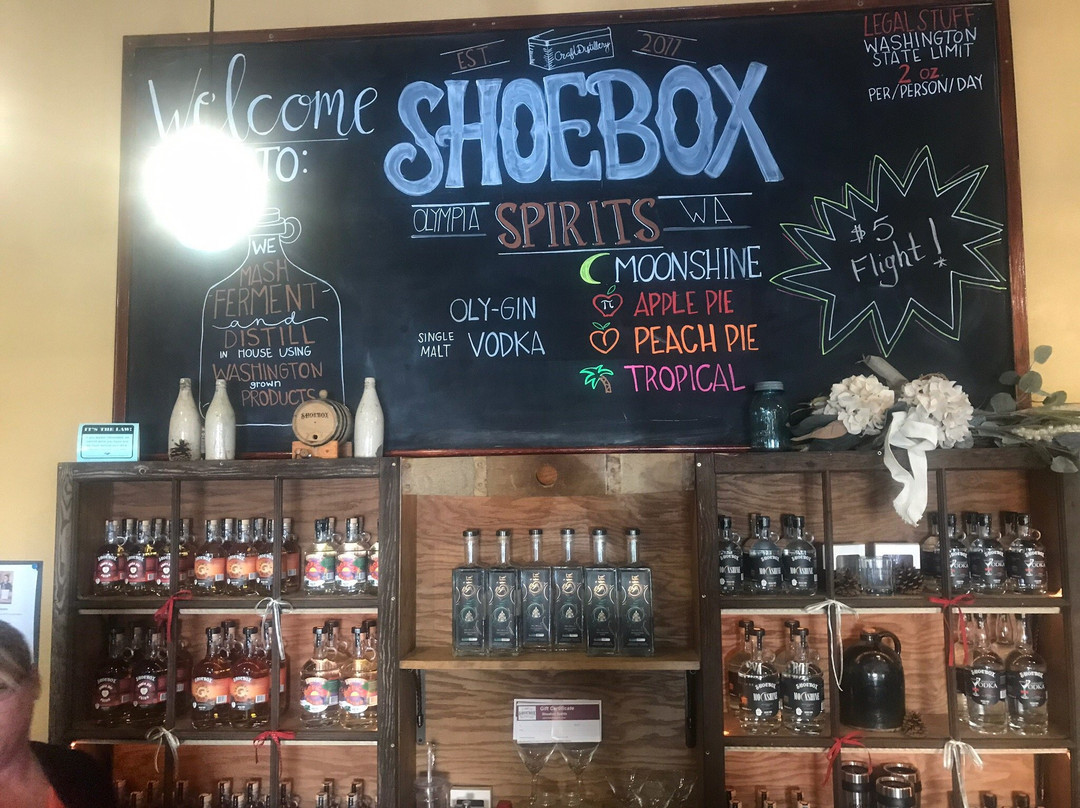 Welcome
TO:
EST.
Craft Distillery
2011
SHOEBOX
OLYMPIA
SPIRITS
WA
LEGAL STUFF
WASHINGTON
STATE LIMIT
2 oz
PER/PERSON/DAY
$5
Flight!
WE
MASH
FERMENT
and
DISTILL
IN HOUSE USING
WASHINGTON
grown
PRODUCTS
OLY-GIN
SINGLE
MALT
VODKA
MOONSHINE
π APPLE PIE
PEACH PIE
TROPICAL
IT'S THE LAW!
SHOEBOX
SHOEBOX
MOONSHINE
SHOEBOX
VODKA
Gift Certificate